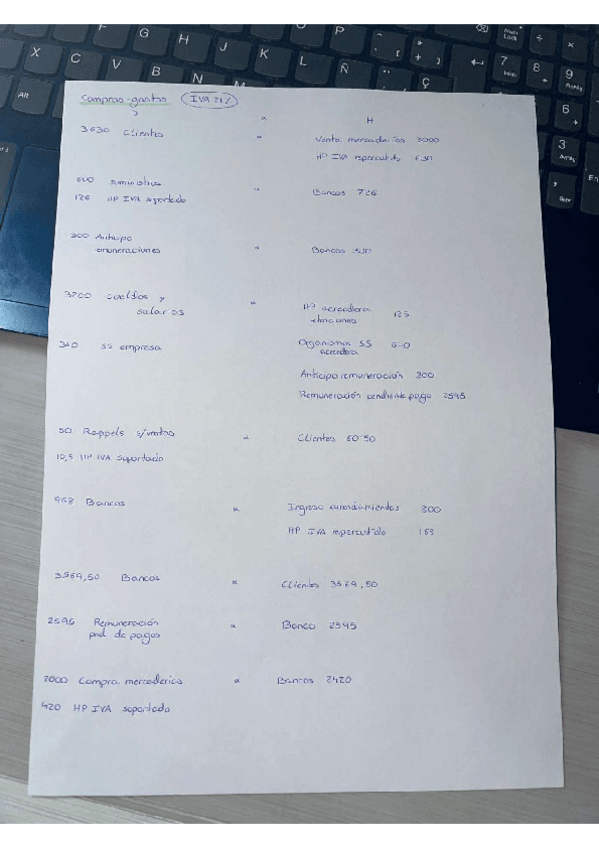 Compras-gastos IVA 21%
H
3630 Clientes a Venta mercaderías 3000
HP IVA repercutido 630
600 suministros a Bancos 726
126 HP IVA soportado
300 Anticipo
remuneraciones a Bancos
3700 Sueldos y
salarios a HP acreedora 125
340 SS empresa Organismos SS
acreedora
Anticipo remuneración 300
Remuneración pendiente pago 2595
50 Rappels s/ventas a Clientes 60'50
10,5 HP IVA soportado
968 Bancos a Ingreso arrendamientos 800
HP IVA repercutido 168
3569,50 Bancos a Clientes 3569,50
2595 Remuneración
pnd. de pagos a Banco 2595
2000 Compra mercaderías a Bancos 2420
420 HP IVA soportado